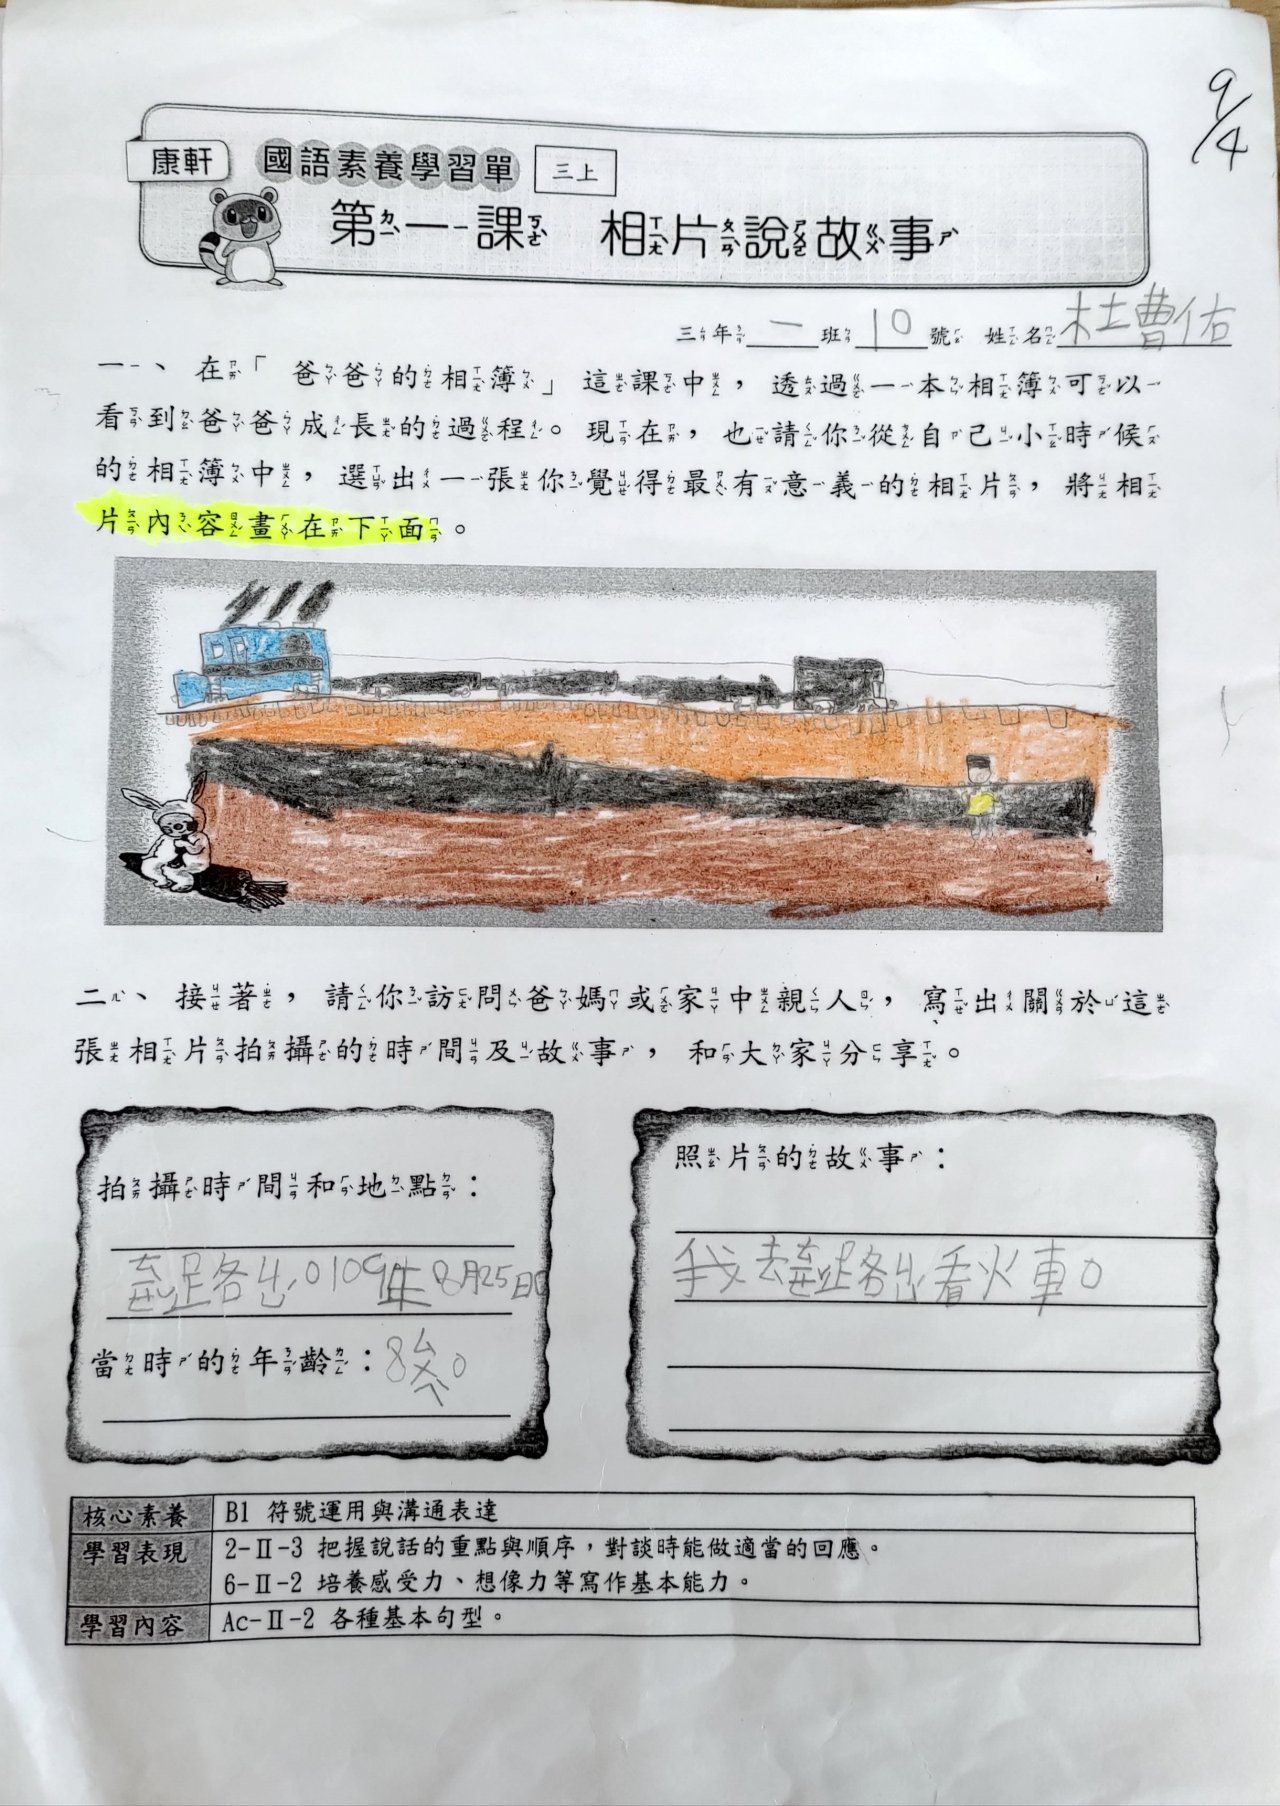 9/4
康軒 國語素養學習單 三上
第一課 相片說故事
三年一班10號 姓名杜曹佑
一、在「爸爸的相簿」這課中，透過一本相簿可以
看到爸爸成長的過程。現在，也請你從自己小時候
的相簿中，選出一張你覺得最有意義的相片，將相
片內容畫在下面。
二、接著，請你訪問爸媽或家中親人，寫出關於這
張相片拍攝的時間及故事，和大家分享。
拍攝時間和地點：
車路屯。109年8月25日
當時的年齡：8ㄙㄨㄟ。
照片的故事：
我去車路屯看火車。
核心素養 B1 符號運用與溝通表達
學習表現 2-Ⅱ-3 把握說話的重點與順序，對談時能做適當的回應。
6-Ⅱ-2 培養感受力、想像力等寫作基本能力。
學習內容 Ac-Ⅱ-2 各種基本句型。